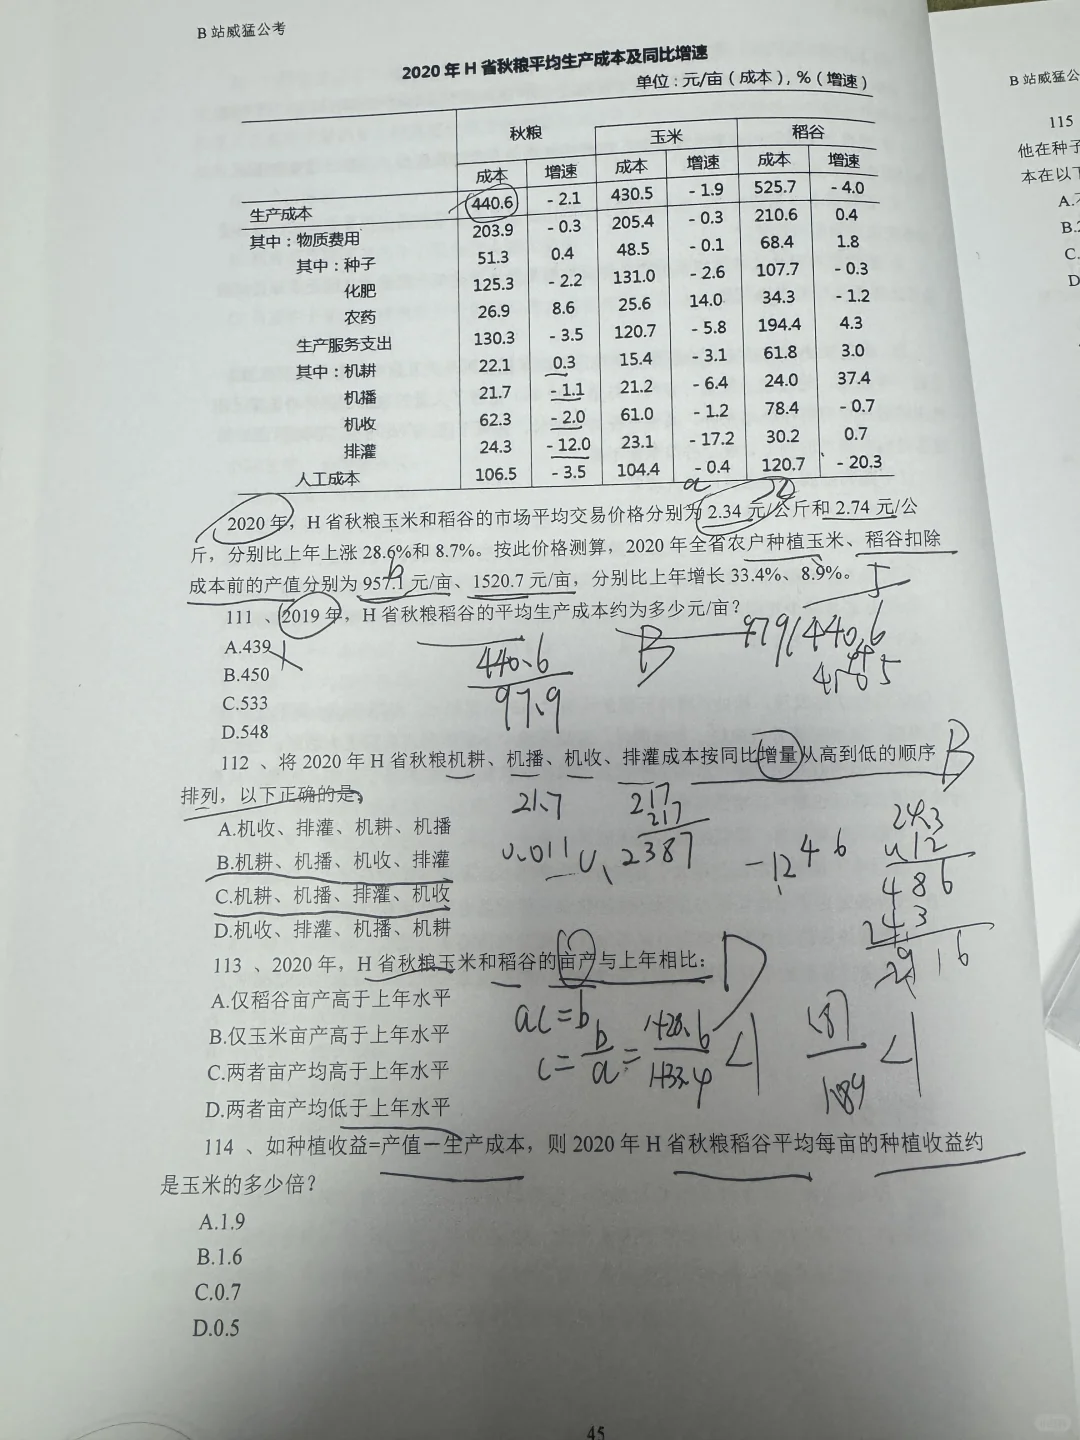 B 站威猛公考
2020 年 H 省秋粮平均生产成本及同比增速
单位：元/亩（成本），%（增速）
秋粮 玉米 稻谷
成本 增速 成本 增速 成本 增速
生产成本 440.6 - 2.1 430.5 - 1.9 525.7 - 4.0
其中：物质费用 203.9 - 0.3 205.4 - 0.3 210.6 0.4
其中：种子 51.3 0.4 48.5 - 0.1 68.4 1.8
化肥 125.3 - 2.2 131.0 - 2.6 107.7 - 0.3
农药 26.9 8.6 25.6 14.0 34.3 - 1.2
生产服务支出 130.3 - 3.5 120.7 - 5.8 194.4 4.3
其中：机耕 22.1 0.3 15.4 - 3.1 61.8 3.0
机播 21.7 - 1.1 21.2 - 6.4 24.0 37.4
机收 62.3 - 2.0 61.0 - 1.2 78.4 - 0.7
排灌 24.3 - 12.0 23.1 - 17.2 30.2 0.7
人工成本 106.5 - 3.5 104.4 - 0.4 120.7 - 20.3
a
2020 年，H 省秋粮玉米和稻谷的市场平均交易价格分别为 2.34 元/公斤和 2.74 元/公
斤，分别比上年上涨 28.6%和 8.7%。按此价格测算，2020 年全省农户种植玉米、稻谷扣除
b
成本前的产值分别为 957.1 元/亩、1520.7 元/亩，分别比上年增长 33.4%、8.9%。
111 、2019 年，H 省秋粮稻谷的平均生产成本约为多少元/亩？
A.439
B.450
C.533
D.548
440.6
97.9
B
979/440.6
112 、将 2020 年 H 省秋粮机耕、机播、机收、排灌成本按同比增量从高到低的顺序
B
排列，以下正确的是：
A.机收、排灌、机耕、机播
B.机耕、机播、机收、排灌
C.机耕、机播、排灌、机收
D.机收、排灌、机播、机耕
21.7
0.011
217
217
0.2387
-1.246
24.3
0.12
486
243
2916
113 、2020 年，H 省秋粮玉米和稻谷的亩产与上年相比：
D
A.仅稻谷亩产高于上年水平
B.仅玉米亩产高于上年水平
C.两者亩产均高于上年水平
D.两者亩产均低于上年水平
ac=b
c=b/a=1+28.6/1+33.4<1
187/189<1
114 、如种植收益=产值－生产成本，则 2020 年 H 省秋粮稻谷平均每亩的种植收益约
是玉米的多少倍？
A.1.9
B.1.6
C.0.7
D.0.5
45
B 站威猛公
115
他在种子
本在以下
A.
B.
C.
D